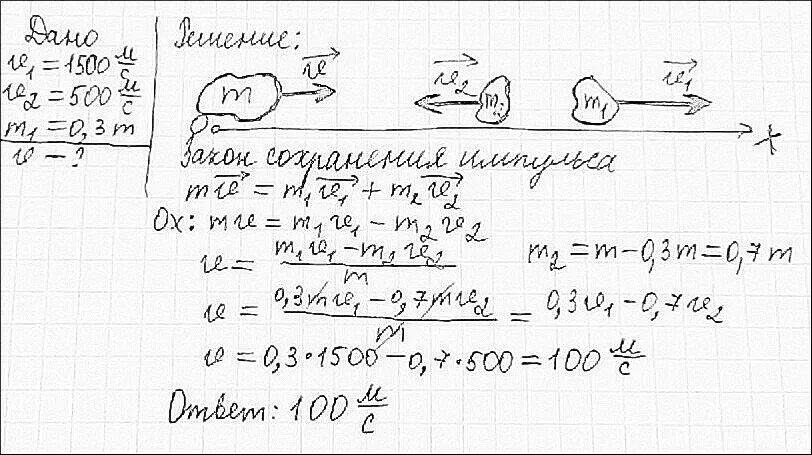 Дано
v₁ = 1500 м/с
v₂ = 500 м/с
m₁ = 0,3 m
v – ?
Решение:
m v⃗ v⃗₂ m₂ m₁ v⃗₁
O x
Закон сохранения импульса
m v⃗ = m₁ v⃗₁ + m₂ v⃗₂
Ox: m v = m₁ v₁ – m₂ v₂
v = (m₁ v₁ – m₂ v₂)/m m₂ = m – 0,3 m = 0,7 m
v = (0,3 m v₁ – 0,7 m v₂)/m = 0,3 v₁ – 0,7 v₂
v = 0,3 · 1500 – 0,7 · 500 = 100 м/с
Ответ: 100 м/с